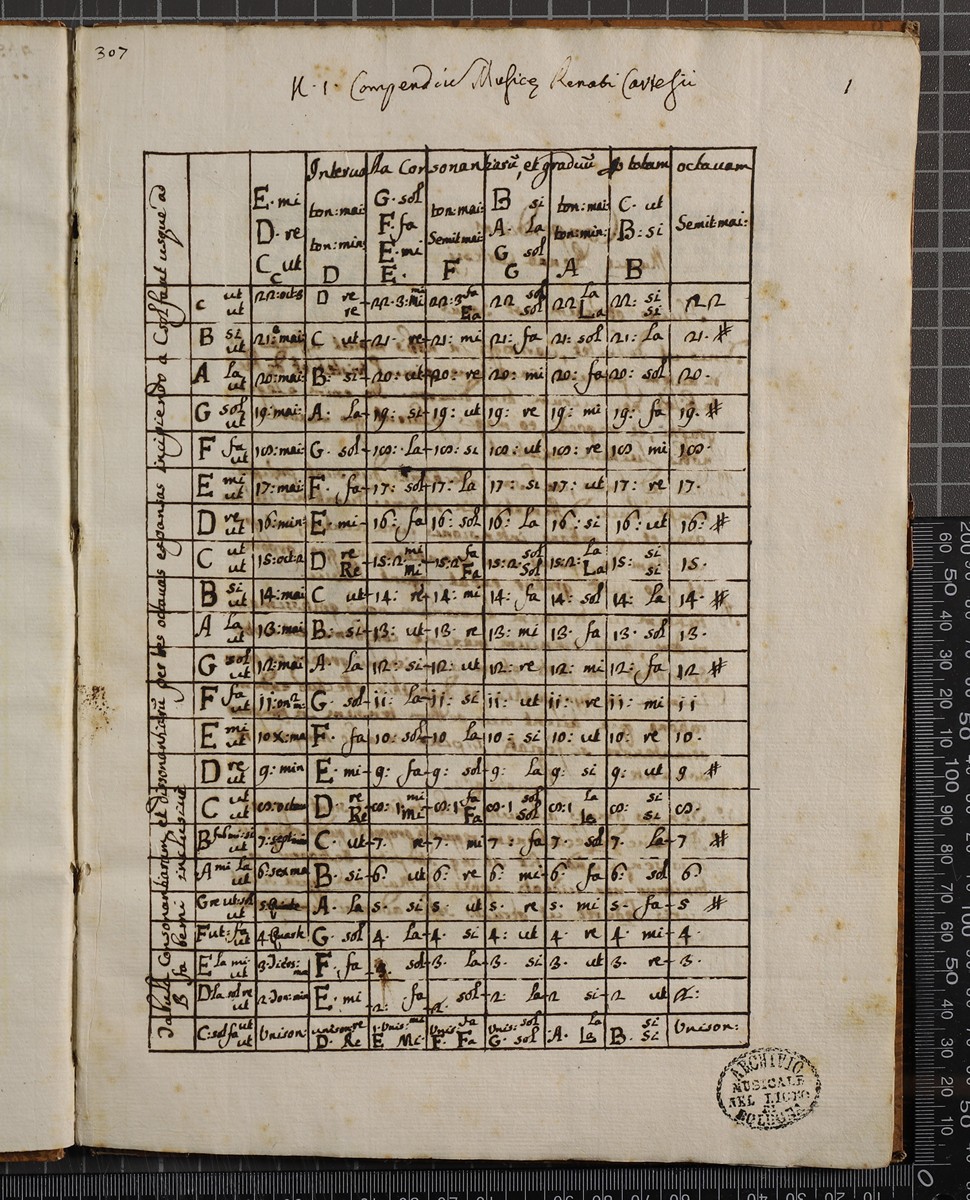 307
N. 1. Compendiū Musicę Renati Cartesii
1
Intervalla Consonantiarū, et graduū totam octavam
E. mi ton: mai: G. sol ton: mai: B si ton: mai: C. ut Semit mai:
D. re F. fa A. La B: si
C ut ton: min: E. mi Semit mai: G sol ton: min:
C D E. F G A B
Tabula Consonantiarum et dissonantiarū per tres octavas expansas incipiendo a Csolfaut usque ad
B fa bemi inclusive
c ut ut 22: D re re 22. 3: mi mi 22: 3 fa Fa 22 sol sol 22 La La 22: si si 22
B si ut 21: mai C ut 21. re 21: mi 21: fa 21: sol 21: la 21. #
A la ut 20: mai B: si 20: ut 20: re 20: mi 20: fa 20: sol 20.
G sol ut 19: mai: A: la 19: si 19: ut 19: re 19: mi 19: fa 19. #
F fa ut 18: mai G. sol 18: la 18: si 18: ut 18: re 18 mi 18.
E mi ut 17: mai F. fa 17: sol 17: la 17: si 17: ut 17: re 17.
D re ut 16: min E. mi 16: fa 16: sol 16: la 16: si 16: ut 16: #
C ut ut 15: octa D re Re 15: 2 mi Mi 15: 2 fa Fa 15: 2 sol Sol 15: 2: la La 15: si si 15.
B si ut 14: mai C ut 14: re 14: mi 14: fa 14: sol 14: la 14. #
A la ut 13: mai B: si 13: ut 13. re 13: mi 13. fa 13. sol 13.
G sol ut 12: mai A. la 12: si 12: ut 12: re 12: mi 12: fa 12 #
F fa ut 11: G. sol 11: la 11: si 11: ut 11: re 11: mi 11
E mi ut 10 F. fa 10: sol 10 la 10: si 10: ut 10: re 10.
D re ut 9: min E. mi 9: fa 9: sol 9: la 9: si 9: ut 9 #
C ut ut 8: octava D. re Re 8: 1 mi Mi 8: 1 fa Fa 8. 1 sol Sol 8: 1 la la 8: si si 8.
B fabmi: si ut 7: septima C. ut 7. re 7: mi 7: fa 7. sol 7. la 7 #
A mi la ut 6: sexma B. si 6: ut 6: re 6: mi 6: fa 6: sol 6:
G re ut sol ut 5 Quinte A. la 5. si 5: ut 5. re 5. mi 5. fa 5 #
F ut: fa ut 4 Quarte G. sol 4. la 4. si 4: ut 4. re 4. mi 4.
E la mi ut 3 F. fa 3. sol 3. la 3. si 3. ut 3. re 3.
D la sol re ut 2. ton: min E. mi 2: fa 2. sol 2: la 2 si 2 ut 2:
C: sol fa ut ut Unison: unison re D. Re 1. Unis: mi E Mi. Unis fa F. Fa Unis: sol G. sol la A. La si B. Si Unison:
ARCHIVIO
MUSICALE
NEL LICEO
DI
BOLOGNA